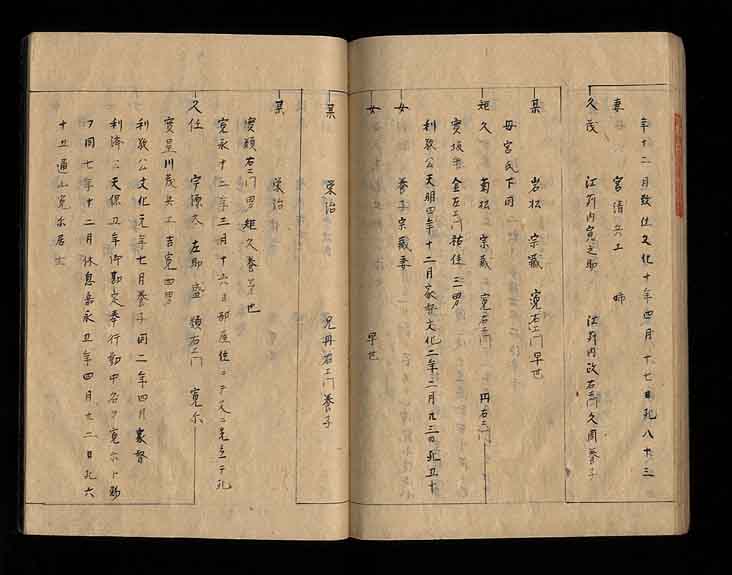 年十二月致仕文化十年四月十七日死八十三
妻 宮清兵エ 姉
久茂 江刺内寛之助 江刺内改右エ門久周養子
某 岩松 宗蔵 寛右エ門 早世
母宮氏下同
矩久 菊松 宗蔵 寛右エ門 円右エ門
実坂 金左エ門祐住二男
利敬公天明四年十二月家督文化二年二月廿三日死五十
女 養子宗蔵妻
女 早世
某 栄治 兄丹右エ門養子
某 栄治
実頼右エ門男矩久養 早世
寛永十二年三月十六日部屋住ニテ父ニ先立テ死
久任 宇源太 左助 盛 頼右エ門 寛示
実星川茂兵エ吉寛四男
利敬公文化元年七月養子同二年四月家督
利済公天保五年御勘定奉行勤中名ヲ寛 ト賜
フ同七年十二月休息嘉永五年四月廿二日死六
十五通山寛示居士